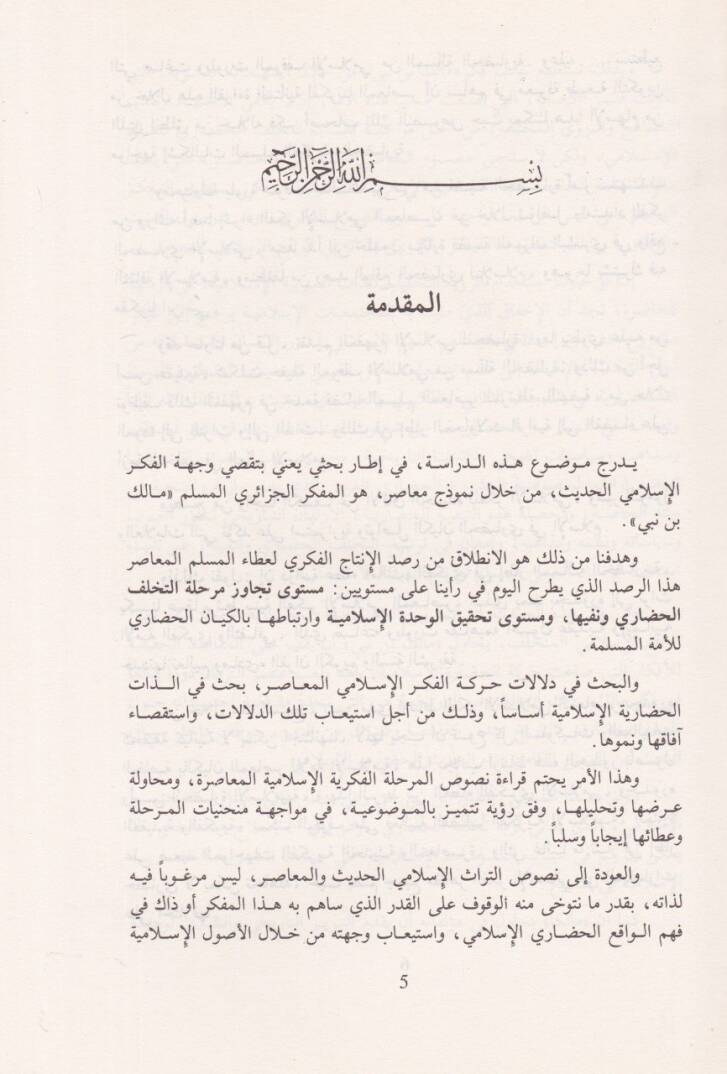 بسم الله الرحمن الرحيم
المقدمة
يدرج موضوع هذه الدراسة، في إطار بحثي يعني بتقصي وجهة الفكر
الإسلامي الحديث، من خلال نموذج معاصر، هو المفكر الجزائري المسلم «مالك
بن نبي».
وهدفنا من ذلك هو الانطلاق من رصد الإنتاج الفكري لعطاء المسلم المعاصر
هذا الرصد الذي يطرح اليوم في رأينا على مستويين: مستوى تجاوز مرحلة التخلف
الحضاري ونفيها، ومستوى تحقيق الوحدة الإسلامية وارتباطها بالكيان الحضاري
للأمة المسلمة.
والبحث في دلالات حركة الفكر الإسلامي المعاصر، بحث في الذات
الحضارية الإسلامية أساساً، وذلك من أجل استيعاب تلك الدلالات، واستقصاء
آفاقها ونموها.
وهذا الأمر يحتم قراءة نصوص المرحلة الفكرية الإسلامية المعاصرة، ومحاولة
عرضها وتحليلها، وفق رؤية تتميز بالموضوعية، في مواجهة منحنيات المرحلة
وعطائها إيجاباً وسلباً.
والعودة إلى نصوص التراث الإسلامي الحديث والمعاصر، ليس مرغوباً فيه
لذاته، بقدر ما نتوخى منه الوقوف على القدر الذي ساهم به هذا المفكر أو ذاك في
فهم الواقع الحضاري الإسلامي، واستيعاب وجهته من خلال الأصول الإسلامية
5